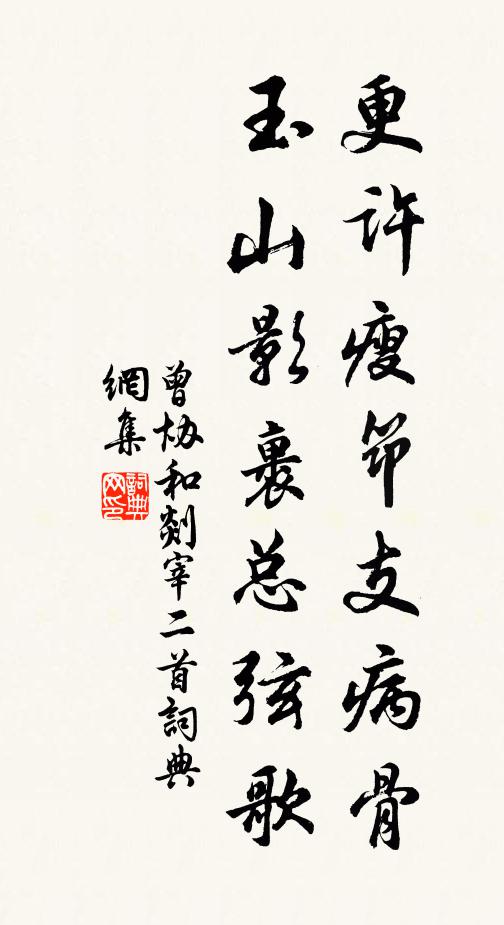 更许瘦筇支病骨
玉山影裏总弦歌
曾协和剡宰二首詞典
網集
詞典
网印